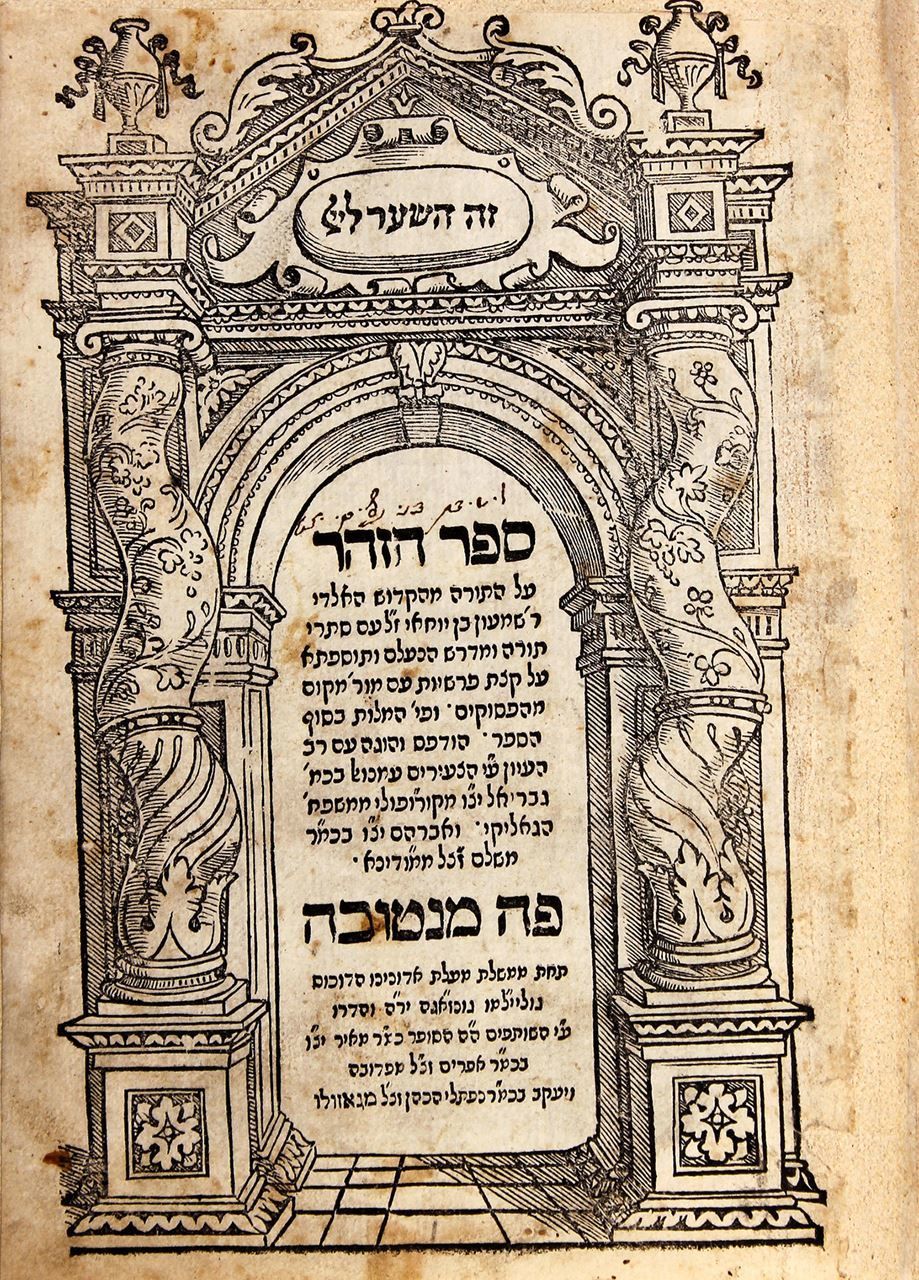 זה השער ליי
ספר הזהר
על התורה מהקדוש האלדי
ר' שמעון בן יוחאי ז"ל עם סתרי
תורה ומדרש הנעלם ותוספתא
על קצת פרשיות עם מור' מקום
מהפסוקים · ופי' המלות בסוף
הספר · הודפס והוגה עם רב
העיון ע"י הצעירים עמנוש בכמ'
גבריאל יצ"ו מקורופולי ממשפח'
הגאליקי · ואברהם יצ"ו בכמ"ר
משלם ז"ל ממודינא ·
פה מנטובה
תחת ממשלת מעלת אדונינו הדוכוס
גולייל"מו גונזאגה יר"ה וסדרו
ע"י השותפים ה"ה הסופר כמ"ר מאיר יצ"ו
בכמ"ר אפרים זצ"ל מפדובה
ויעקב בכמ"ר נפתלי הכהן זצ"ל מגאזולו